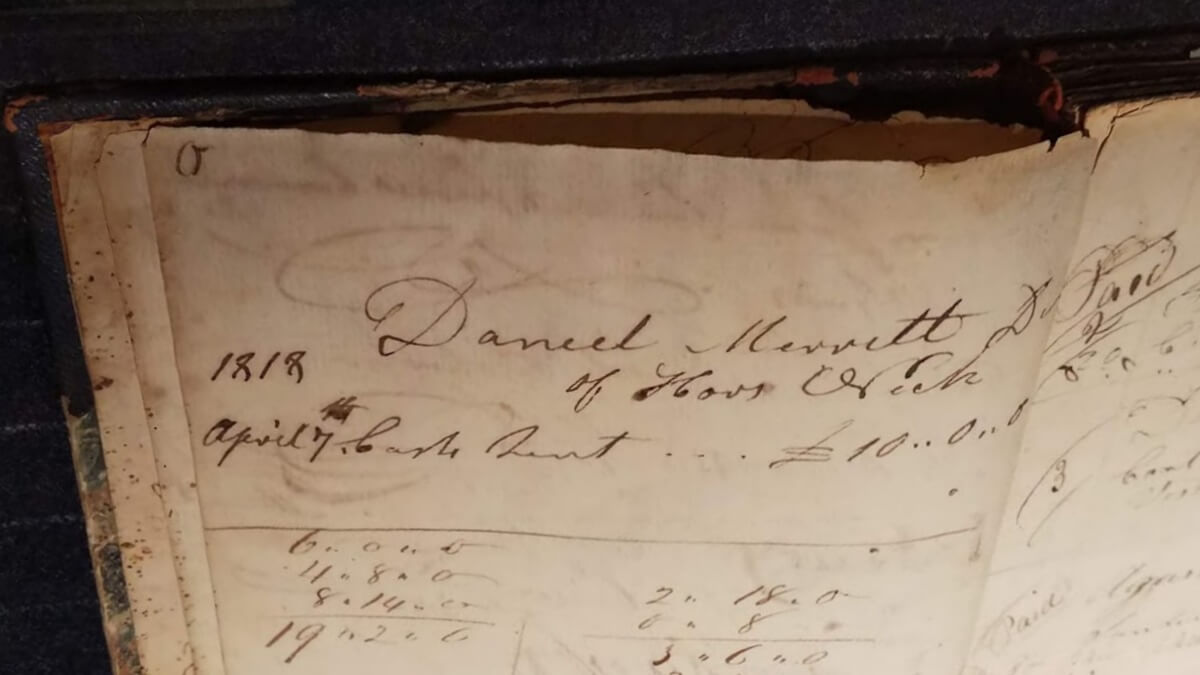 0
Daniel Merrett Dr
1818 of Hors Wick
April 7th Cash Lent .... £10..0..0
6..0..0
4..8..0
8..14..0
19..2..0
2.. 18..0
0.. 8
3..6..0
Paid
3
Paid Agnes